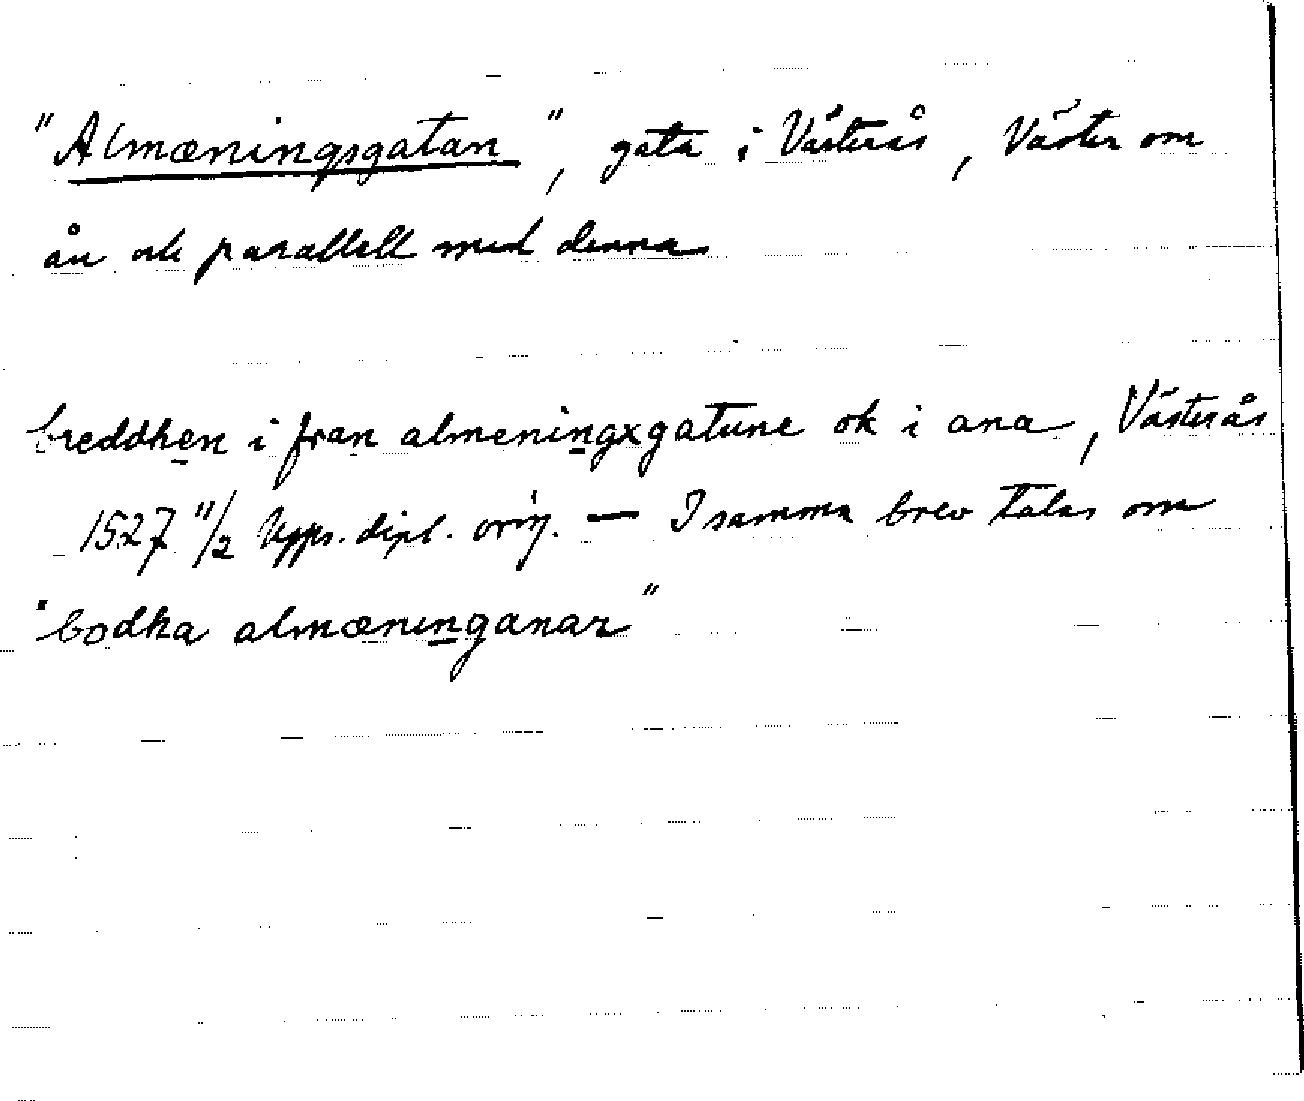 "Almæningsgatan", gata i Västerås, Väster om
ån och parallell med denna
breddhen i fran almeningxgatune ok i ana, Västerås
1527 11/2 Upps. dipl. orig. — I samma brev talas om
"bodha almæninganar"